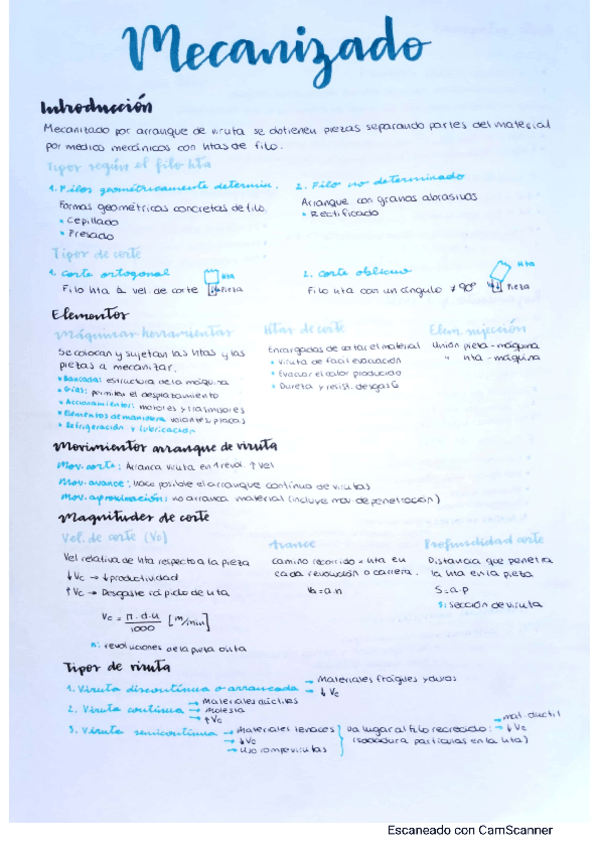 Mecanizado
Introducción
Mecanizado por arranque de viruta se obtienen piezas separando partes del material
por medios mecánicos con htas de filo.
Tipos según el filo hta
1. Filos geométricamente determin.
Formas geométricas concretas de filo.
• Cepillado
• Fresado
2. Filo no determinado
Arranque con granos abrasivos
• Rectificado
Tipos de corte
1. corte ortogonal
Filo hta ⊥ vel. de corte
Hta
Pieza
2. corte oblicuo
Filo hta con un ángulo ≠ 90º
Hta
Pieza
Elementos
Máquinas herramientas
Se colocan y sujetan las htas y las
piezas a mecanizar.
• Bancadas: estructura de la máquina
• Guías: permiten el desplazamiento
• Accionamientos: motores y trasmisores
• Elementos de maniobra: volantes, placas
• Refrigeración y lubricación
Htas de corte
Encargadas de cortar el material
• Viruta de fácil evacuación
• Evacuar el calor producido
• Dureza y resist. desgas
Elem. sujección
Unión pieza-máquina
" hta-máquina
Movimientos arranque de viruta
Mov. corte: Arranca viruta en 1 revol. ↑ Vel
Mov. avance: hace posible el arranque continuo de virutas
Mov. aproximación: no arranca material (incluye mov de penetración)
Magnitudes de corte
Vel. de corte (Vc)
Vel relativa de hta respecto a la pieza
↓ Vc → ↓ productividad
↑ Vc → Desgaste rápido de hta
Vc = π·d·n / 1000 [m/min]
n: revoluciones de la pieza o hta
Avance
camino recorrido x hta en
cada revolución o carrera.
Va = a.n
Profundidad corte
Distancia que penetra
la hta en la pieza
S = a.p
S: sección de viruta
Tipos de viruta
1. Viruta discontinua o arrancada → Materiales frágiles y duros
→ ↓ Vc
2. Viruta continua → Materiales dúctiles
→ molesta
→ ↑ Vc
3. Viruta semicontinua → Materiales tenaces
→ ↓ Vc
→ Uso rompevirutas
Da lugar al filo recrecido:
(soldadura partículas en la hta)
→ mat. dúctil
→ ↓ Vc
Escaneado con CamScanner